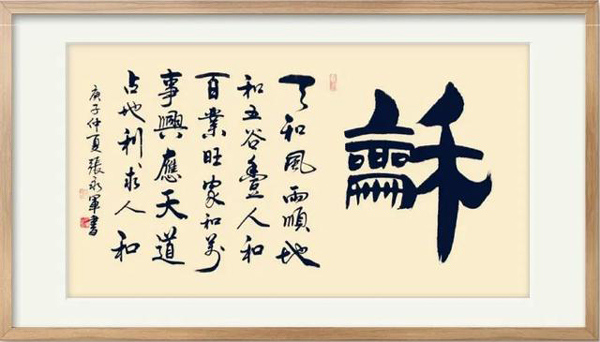 龢
天和風雨順地
和五谷豐人和
百業旺家和萬
事興應天道
占地利求人和
庚子仲夏張永軍書